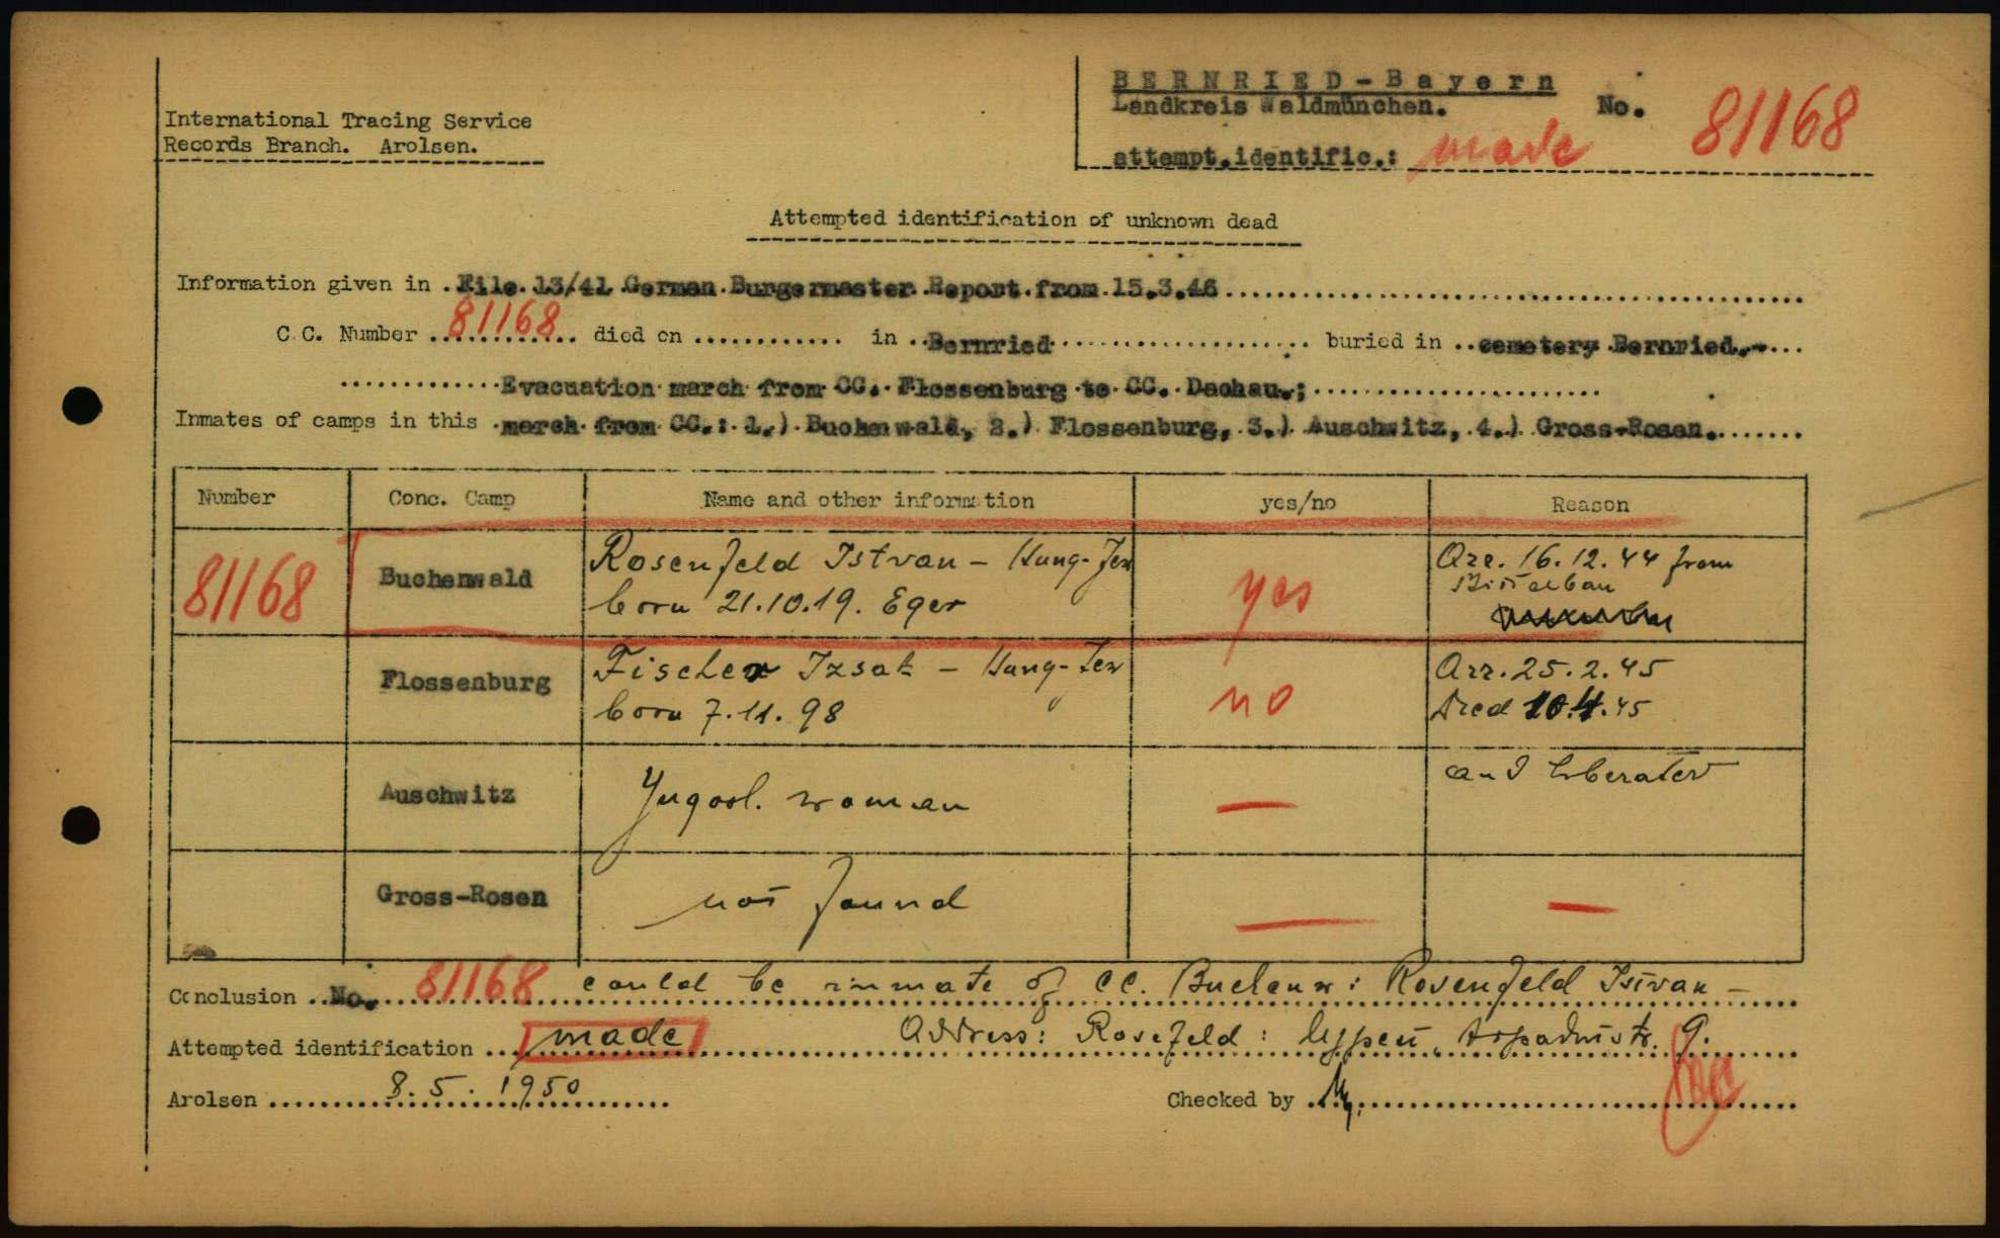 BERNRIED-Bayern
Landkreis Waldmünchen. No. 81168
attempt.identific.: made
International Tracing Service
Records Branch. Arolsen.
Attempted identification of unknown dead
Information given in . File. 13/41 German Burgermaster Report from 15.3.46
C.C. Number 81168 died on in Bernried buried in cemetery Bernried.-
Evacuation march from CC. Flossenburg to CC. Dachau.;
Inmates of camps in this march from CC.: 1.) Buchenwald, 2.) Flossenburg, 3.) Auschwitz, 4.) Gross-Rosen.
Number Conc. Camp Name and other information yes/no Reason
81168 Buchenwald Rosenfeld Istvan - Hung-Jew yes Arr. 16.12.44 from
born 21.10.19. Eger
Flossenburg Fischer Izsak - Hung-Jew no Arr. 25.2.45
born 7.11.98 Died 10.4.45
Auschwitz Yugosl. woman — and liberated
Gross-Rosen not found — —
Conclusion No. 81168 could be inmate of CC. Buchenw: Rosenfeld Istvan -
Attempted identification made Address: Rosefeld: 9.
Arolsen 8.5.1950 Checked by